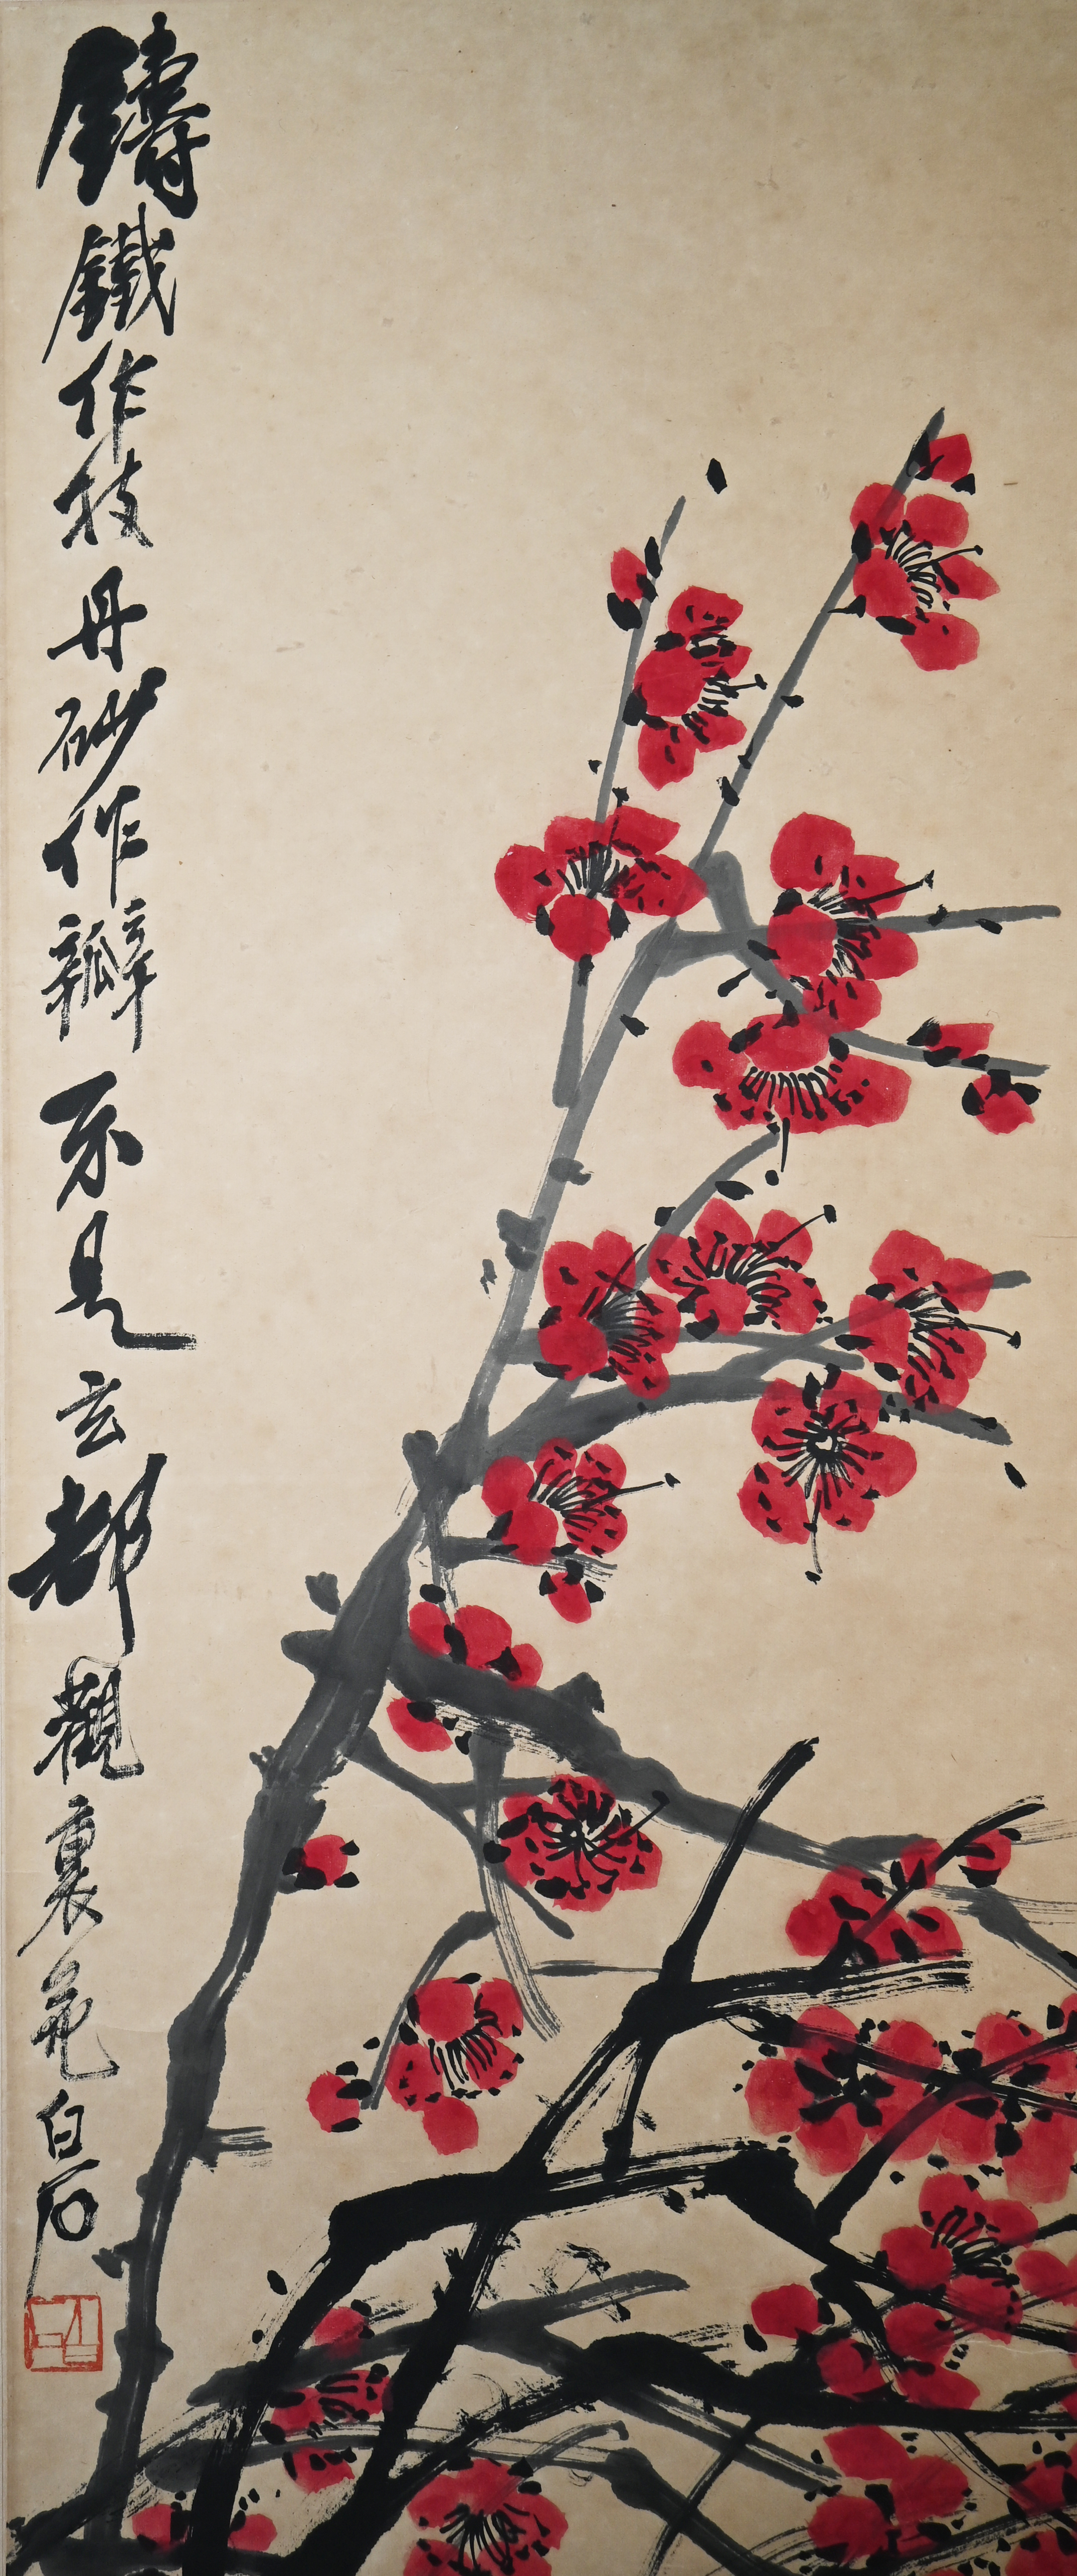 鑄鐵作枝丹砂作瓣不是玄都觀裏花白石